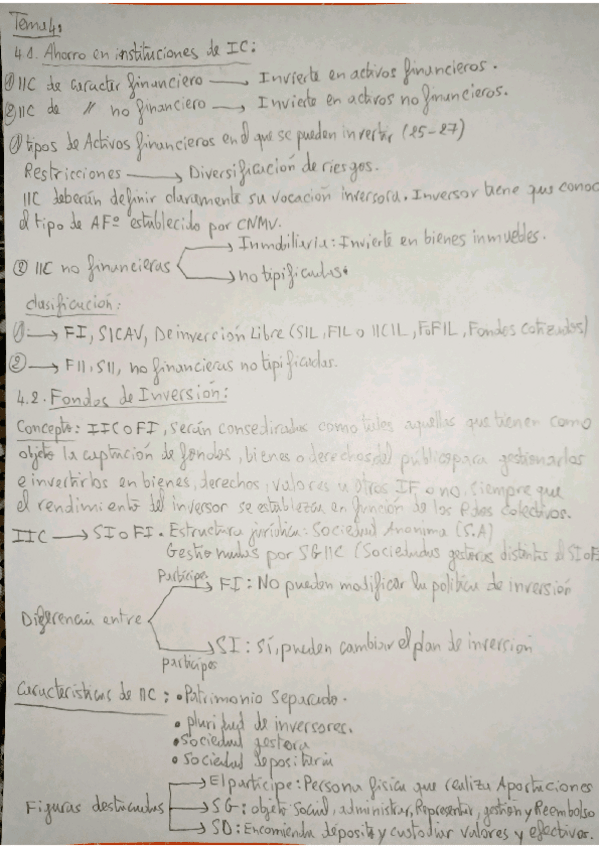 Tema 4:
4.1. Ahorro en instituciones de IC:
① IIC de caracter financiero → Invierte en activos financieros.
② IIC de // no financiero → Invierte en activos no financieros.
① tipos de Activos financieros en el que se pueden invertir (25-27)
Restricciones → Diversificación de riesgos.
IIC deberán definir claramente su vocación inversora. Inversor tiene que conoc
el tipo de AFº establecido por CNMV.
② IIC no financieras → Inmobiliaria: Invierte en bienes inmuebles.
→ no tipificadas.
clasificación:
① → FI, SICAV, De inversion Libre (SIL, FIL o IICIL, FoFIL, Fondos cotizados)
② → FII, SII, no financieras no tipificadas.
4.2. Fondos de Inversión:
Concepto: IIC o FI, serán consedirados como tales aquellas que tienen como
objeto la captación de fondos, bienes o derechos del publico para gestionarlos
e invertirlos en bienes, derechos, valores u otros IF o no. Siempre que
el rendimiento del inversor se establezca en función de los Rdos colectivos.
IIC → SI o FI. Estructura jurídica: Sociedad Anonima (S.A)
Gestionadas por SGIIC (Sociedades gestoras distintas al SI o FI
Participe → FI: No pueden modificar la politica de inversión
Diferencia entre
→ SI: Sí, pueden cambiar el plan de inversion
participes
Caracteristicas de IIC: • Patrimonio Separado.
• pluridad de inversores.
• Sociedad gestora
• Sociedad depositaria
→ El participe: Persona fisica que realiza Aportaciones
Figuras destacadas → SG: objeto Social, administrar, Representar, gestión y Reembolso
→ SD: Encomienda deposito y custodiar valores y efectivos.